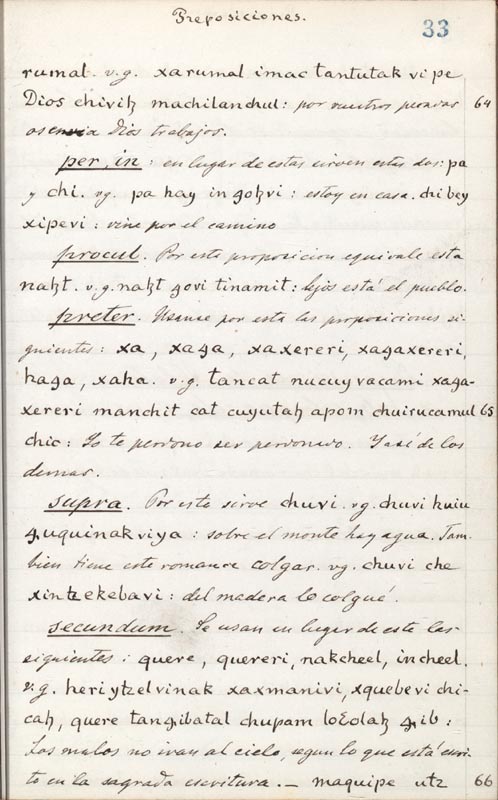 Preposiciones.
33
rumal. v.g. xarumal imac tantutak vi pe
Dios chiviꜩ machilanchul: por vuestros pecados 64
os envia Dios trabajos.
per, in: en lugar de estas sirven estas dos: pa
y chi. vg. pa hay in goꜩvi: estoy en casa. chi bey
xipevi: vine por el camino
procul. Por esta preposicion equivale esta
naꜩt. v.g. naꜩt govi tinamit: lejos está el pueblo.
preter. Usanse por esta las preposiciones si-
guientes: xa, xaga, xaxereri, xagaxereri,
haga, xaha. v.g. tancat nucuy vacami xaga-
xereri manchit cat cuyutaꜩ apom chuirucamul 65
chic: Yo te perdono ser perdonado. Y asi de los
demas.
supra. Por esta sirve chuvi. vg. chuvi huiu
ꜭuquinak viya: sobre el monte hay agua. Tam-
bien tiene este romance colgar. vg. chuvi che
xintzekebavi: del madera lo colgué.
secundum. Se usan en lugar de este las
siguientes: quere, quereri, nakcheel, incheel.
v.g. heri ytzel vinak xaxmanivi, xquebevi chi-
caꜩ, quere tanꜭibatal chupam loꜫolaꜩ ꜭib:
Los malos no iran al cielo, segun lo que está escri-
to en la sagrada escritura. — maquipe utz 66